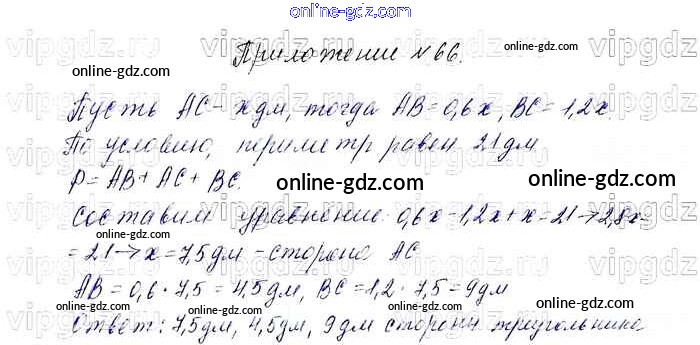 online-gdz.com
Приложение №66.
online-gdz.com online-gdz.com
Пусть AC - x дм, тогда AB = 0,6x, BC = 1,2x.
online-gdz.com
По условию, периметр равен 21 дм.
P = AB + AC + BC.
online-gdz.com online-gdz.com
Составим уравнение: 0,6x - 1,2x + x = 21 → 2,8x =
= 21 → x = 7,5 дм - сторона AC
online-gdz.com
AB = 0,6 · 7,5 = 4,5 дм, BC = 1,2 · 7,5 = 9 дм
online-gdz.com online-gdz.com
Ответ: 7,5 дм, 4,5 дм, 9 дм стороны треугольника